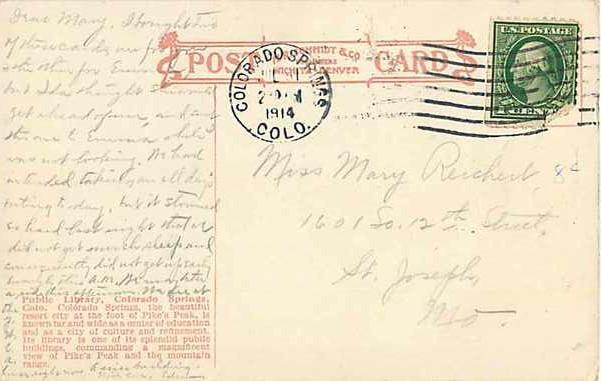 Dear Mary, I bought two
of these cards one for you
the other for Emma
but I thought I would
get ahead of her and sent
this one to Emma while I
was not looking. We had
intended taking an all day
outing today, but it stormed
so hard last night that we
did not get much sleep and
consequently did not get up early
this A.M. We may take
a ride this afternoon. We are at
the
Y.
M.
C.
a.
building.
POST CARD
SCHMIDT & CO
DENVER
COLORADO SPRINGS
1914
COLO.
U.S. POSTAGE
Miss Mary Reichert
8c
1601 So. 12th Street,
St. Joseph,
Mo.
Public Library, Colorado Springs,
Colo. Colorado Springs, the beautiful
resort city at the foot of Pike's Peak, is
known far and wide as a center of education
and as a city of culture and refinement.
Its library is one of its splendid public
buildings, commanding a magnificent
view of Pike's Peak and the mountain
range.